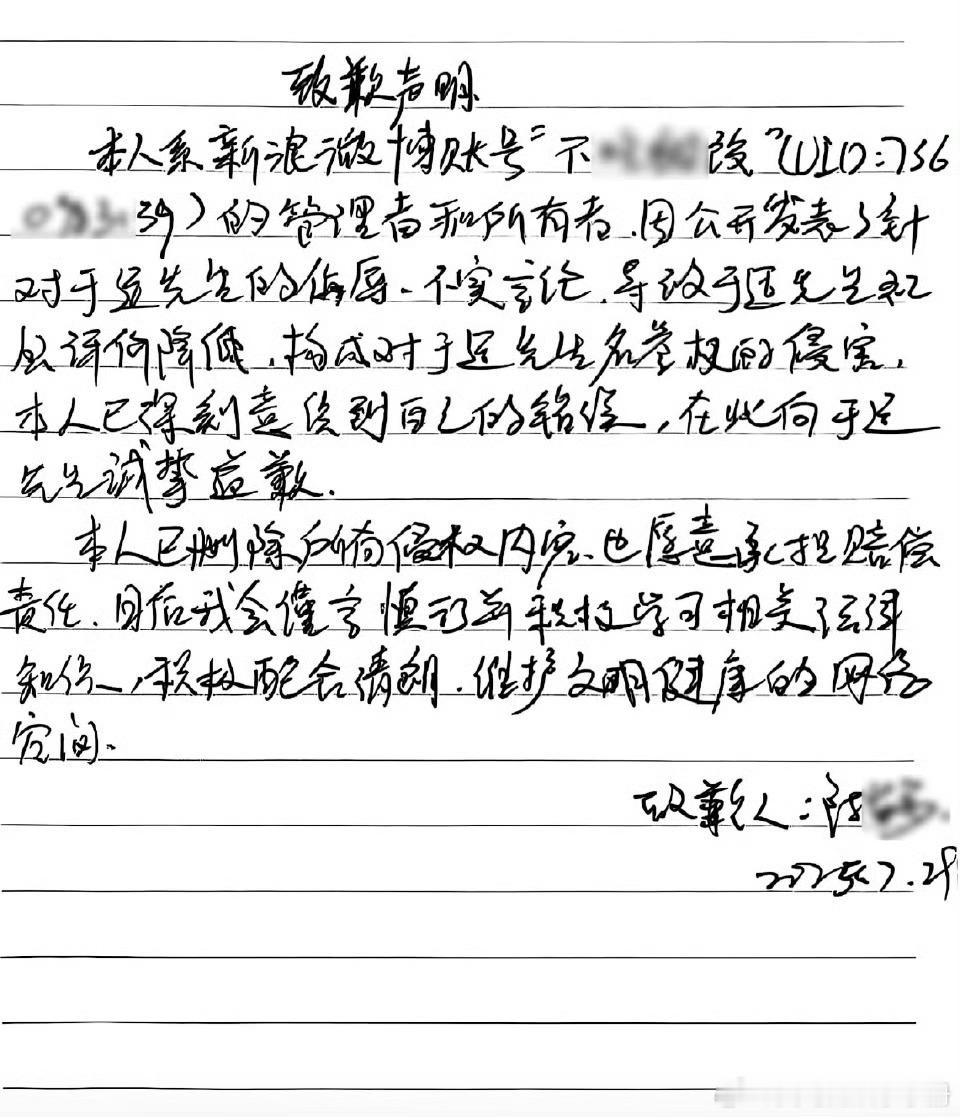 致歉声明
本人系新浪微博账号"不 改"(UID:756
39)的管理者和所有者,因公开发表了针
对于适先生的侮辱、不实言论,导致于适先生社
会评价降低,构成对于适先生名誉权的侵害,
本人已深刻意识到自己的错误,在此向于适
先生诚挚道歉.
本人已删除所有侵权内容、也愿意承担赔偿
责任.日后我会谨言慎行并积极学习相关法律
知识,积极配合清朗.维护文明健康的网络
空间.
致歉人:陈
2025.7.29